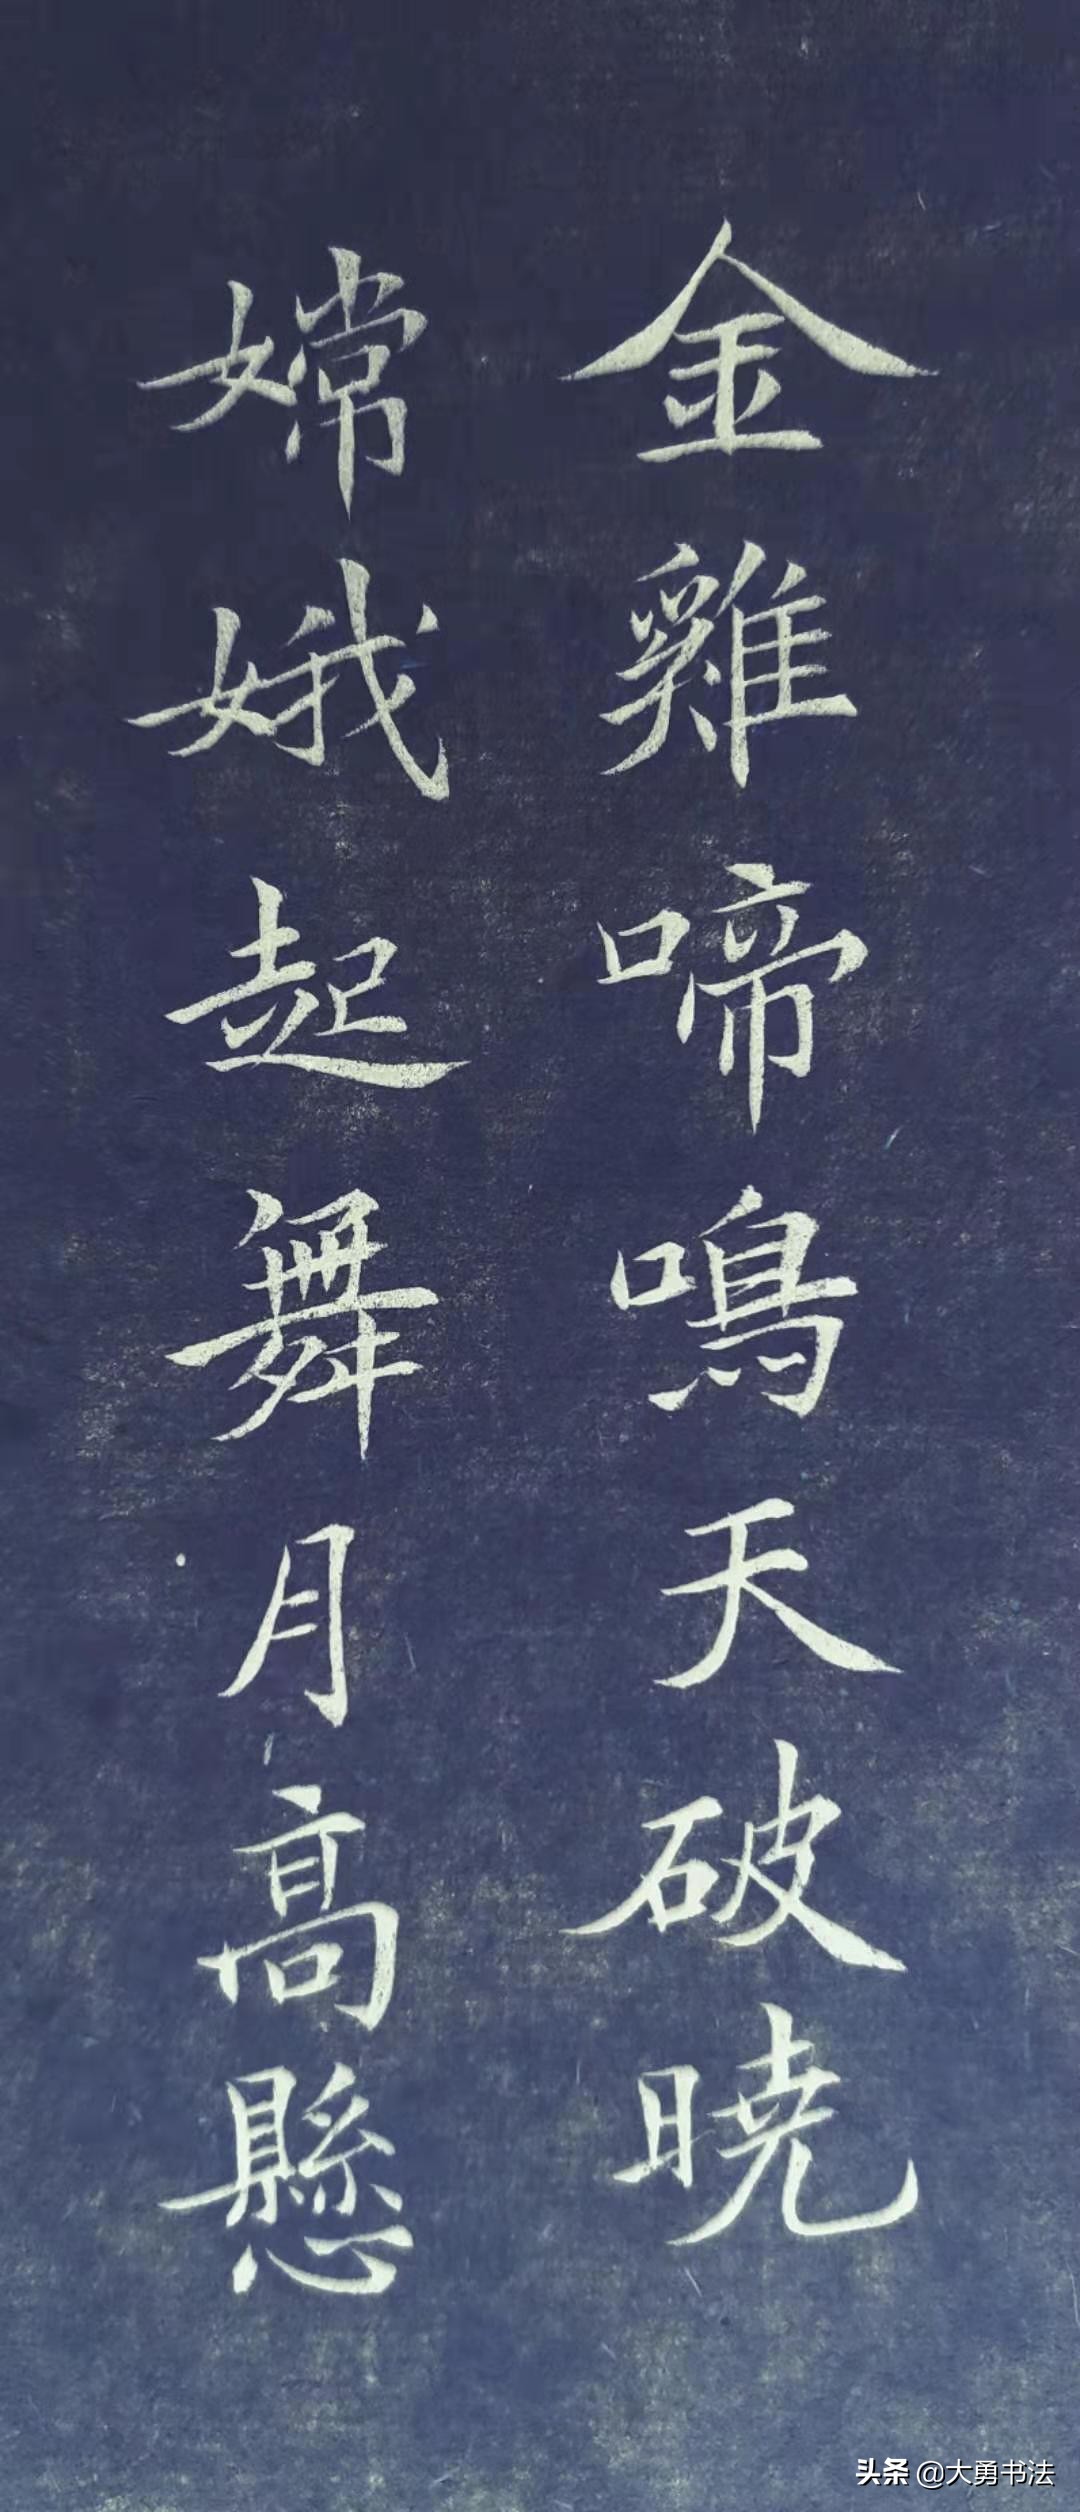 金雞啼鳴天破曉
嫦娥起舞月高懸
头条 @大勇书法